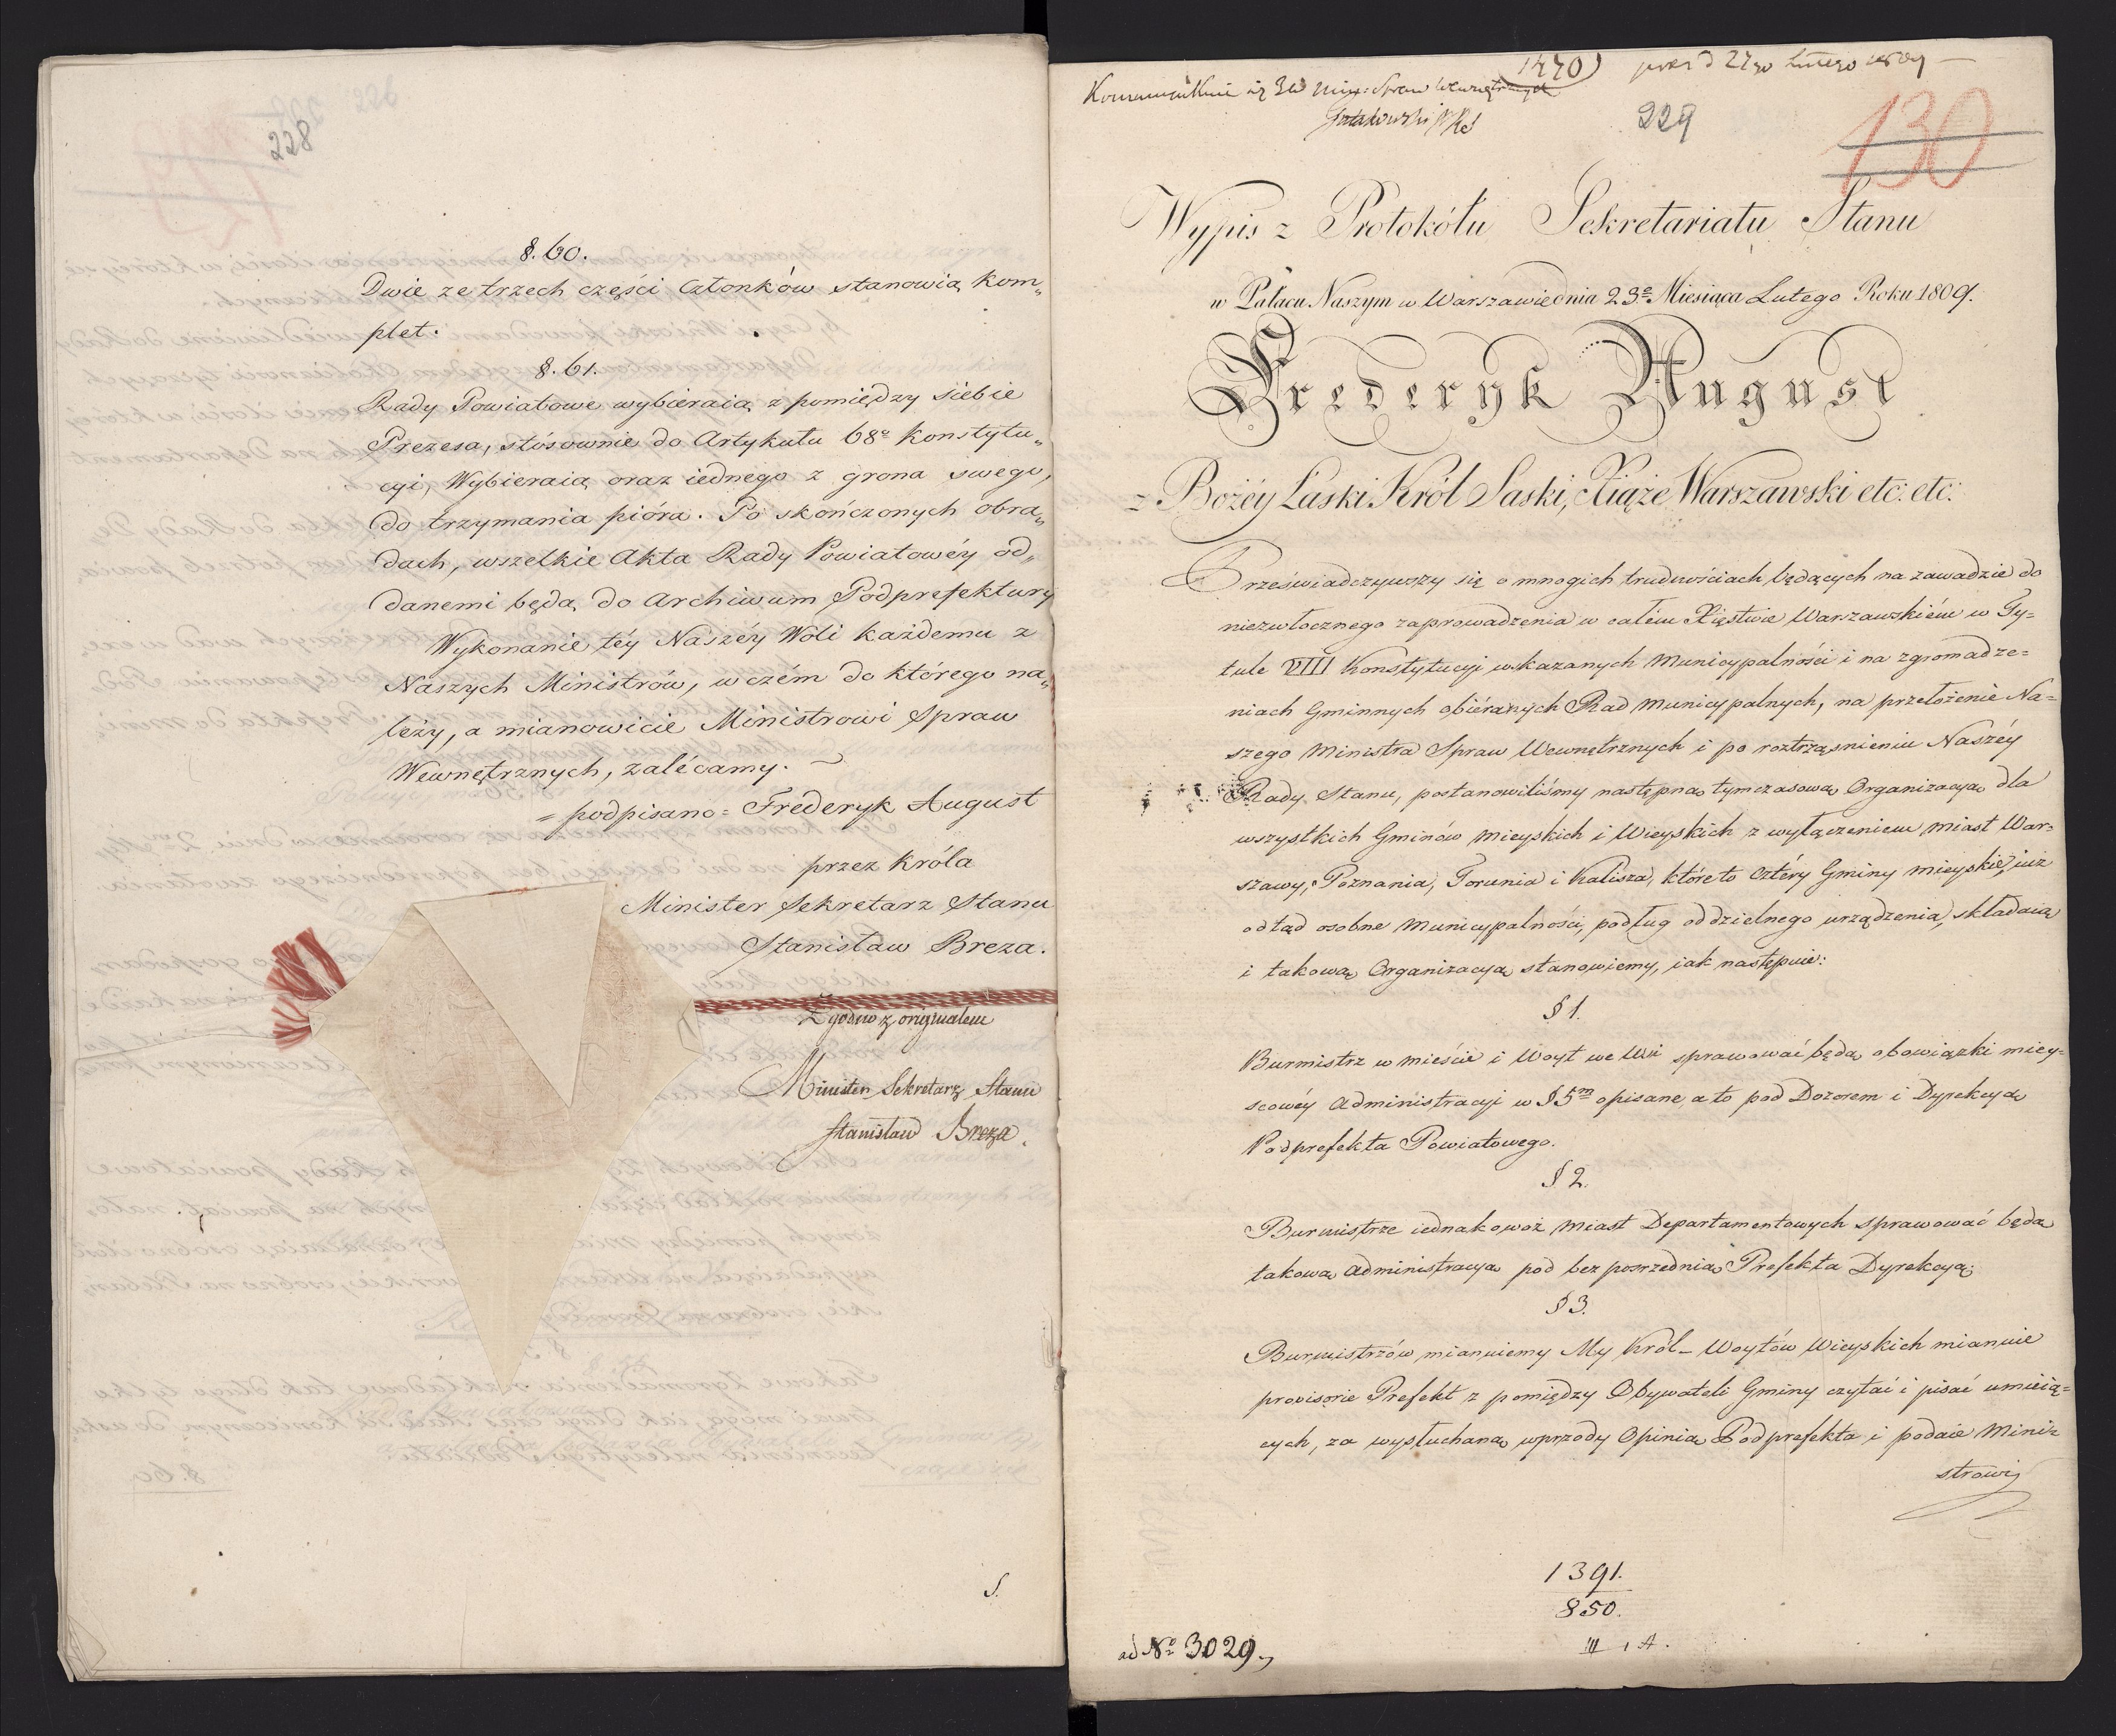 228
§. 60.
Dwie ze trzech części Członków stanowią kom„
plet.
§. 61.
Rady Powiatowe wybieraią z pomiędzy siebie
Prezesa, stósownie do Artykułu 68º Konstytu„
cyi, Wybieraią oraz iednego z grona swego,
do trzymania pióra. Po skończonych obra„
dach, wszelkie Akta Rady Powiatowéy od„
danemi będą do Archiwum Podprefektury
Wykonanie téy Naszéy Woli każdemu z
Naszych Ministrów, w czém do którego na„
leży, a mianowicie Ministrowi Spraw
Wewnętrznych, zalécamy.
= podpisano = Frederyk August
przez Króla
Minister Sekretarz Stanu
Stanisław Breza.
Zgodno z originałem
Minister Sekretarz Stanu
Stanisław Breza.
S.
1470
229
130
Wypis z Protokółu Sekretariatu Stanu
w Pałacu Naszym w Warszawie dnia 23º Miesiąca Lutego Roku 1809.
Frederyk August
z Bożéy Łaski Król Saski, Xiąże Warszawski etc: etc:
Przeświadczywszy się o mnogich trudnościach będących na zawadzie do
niezwłocznego zaprowadzenia w całém Xięstwie Warszawskiém w Ty=
tule VIII Konstytucyi wskazanych Municypalności i na zgromadze=
niach Gminnych obiéranych Rad Municypalnych, na przełożenie Na=
szego Ministra Spraw Wewnętrznych i po roztrząśnieniu Naszéy
Rady Stanu, postanowiliśmy następną tymczasową Organizacyą dla
wszystkich Gminów Mieyskich i Wieyskich z wyłączeniem Miast War=
szawy, Poznania, Torunia i Kalisza, które to cztéry Gminy mieyskie, iuż
odtąd osobne Municypalności, podług oddzielnego urządzenia, składaią
i takową Organizacyą stanowiemy, iak następuie:
§ 1.
Burmistrz w Mieście i Woyt we Wsi sprawować będą obowiązki miey=
scowéy Administracyi w § 5m opisane, a to pod Dozorem i Dyrekcyą
Podprefekta Powiatowego.
§ 2.
Burmistrze iednakowoż Miast Departamentowych sprawować będą
takową Administracyą pod bezpośrzednią Prefekta Dyrekcyą.
§ 3.
Burmistrzów mianuiemy My Król – Woytów Wieyskich mianuie
provisorie Prefekt z pomiędzy Obywateli Gminy czytać i pisać umieią=
cych, za wysłuchaną wprzody Opinią Podprefekta i podaie Mini=
strowi
1391.
850.
III 1 A.
ad Nº 3029.